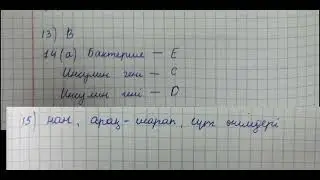 13) В
14 (а) Бактерия – Е
Инсулин гені – С
Инсулин гені – D
15) нан, арақ-шарап, сүт өнімдері